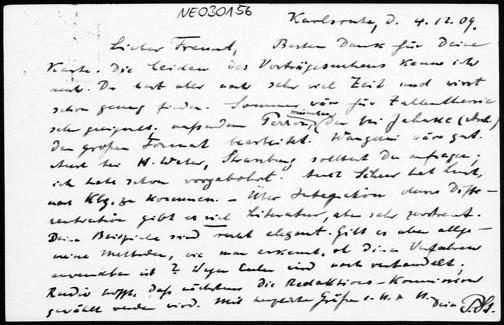 NE030156
Karlsruhe, d. 4.12.09.
Lieber Freund, Besten Dank für Deine
Karte. Die Leiden des Vortragsuchens kenne ich
auch. Du hast aber noch sehr viel Zeit und wirst
schon genug finden. Sommer wäre für Zahlentheorie
sehr geeignet, außerdem Perron, der bei
den großen Fermat bearbeitet. Wangerin wäre gut.
Auch bei H. Weber, Straßburg solltest Du anfragen;
ich habe schon vorgebohrt. Auch hat Lust,
nach Kbg. zu kommen. – Über Integration durch Diffe-
rentiation gibt es viel Literatur, aber sehr zerstreut.
Deine Beispiele sind recht elegant. Gibt es aber allge-
meine Methoden, wie man erkennt, ob diese Verfahren
anwendbar ist? Wegen Euler wird noch verhandelt;
Rudio hofft, daß nächstens die Redaktions-Kommission
gewählt werden wird. Mit Grüßen v. H. z. H.
Dein P. St.